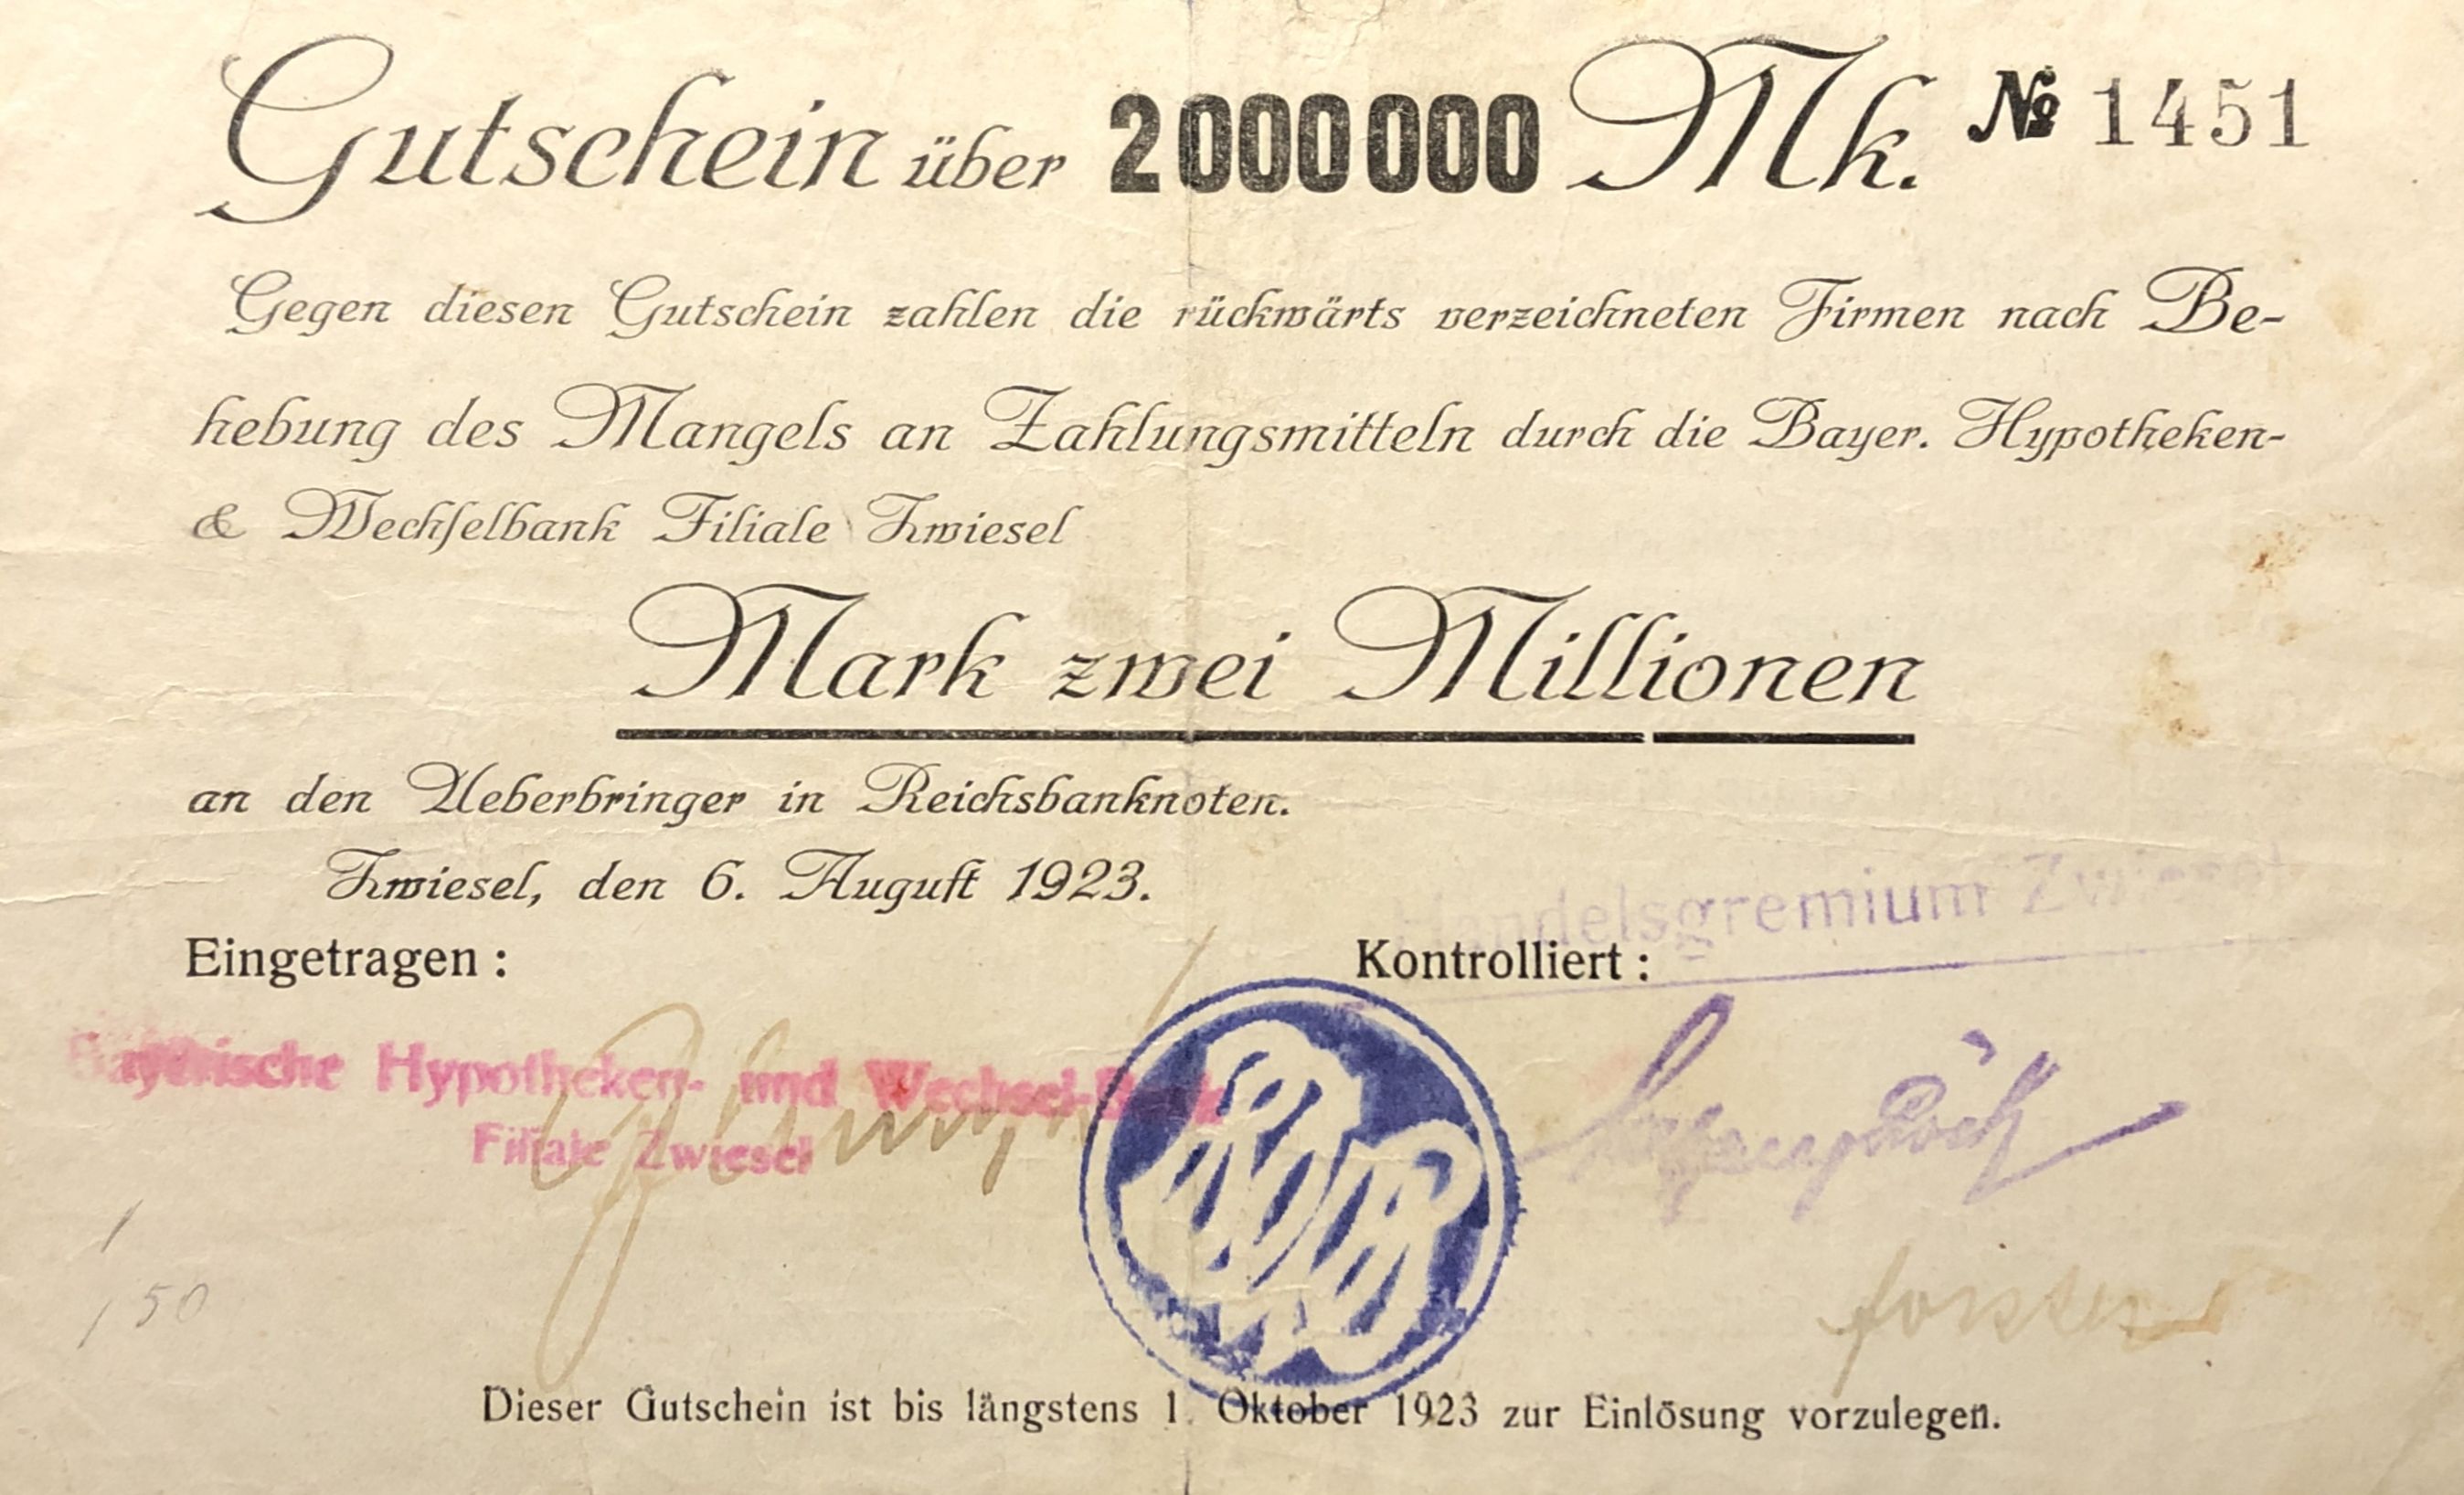 Gutschein über 2000000 Mk. № 1451
Gegen diesen Gutschein zahlen die rückwärts verzeichneten Firmen nach Be-
hebung des Mangels an Zahlungsmitteln durch die Bayer. Hypotheken-
& Wechselbank Filiale Zwiesel
Mark zwei Millionen
an den Ueberbringer in Reichsbanknoten.
Zwiesel, den 6. August 1923.
Handelsgremium Zwiesel
Eingetragen :
Kontrolliert :
Bayerische Hypotheken- und Wechsel-Bank
Filiale Zwiesel
50
Dieser Gutschein ist bis längstens 1. Oktober 1923 zur Einlösung vorzulegen.